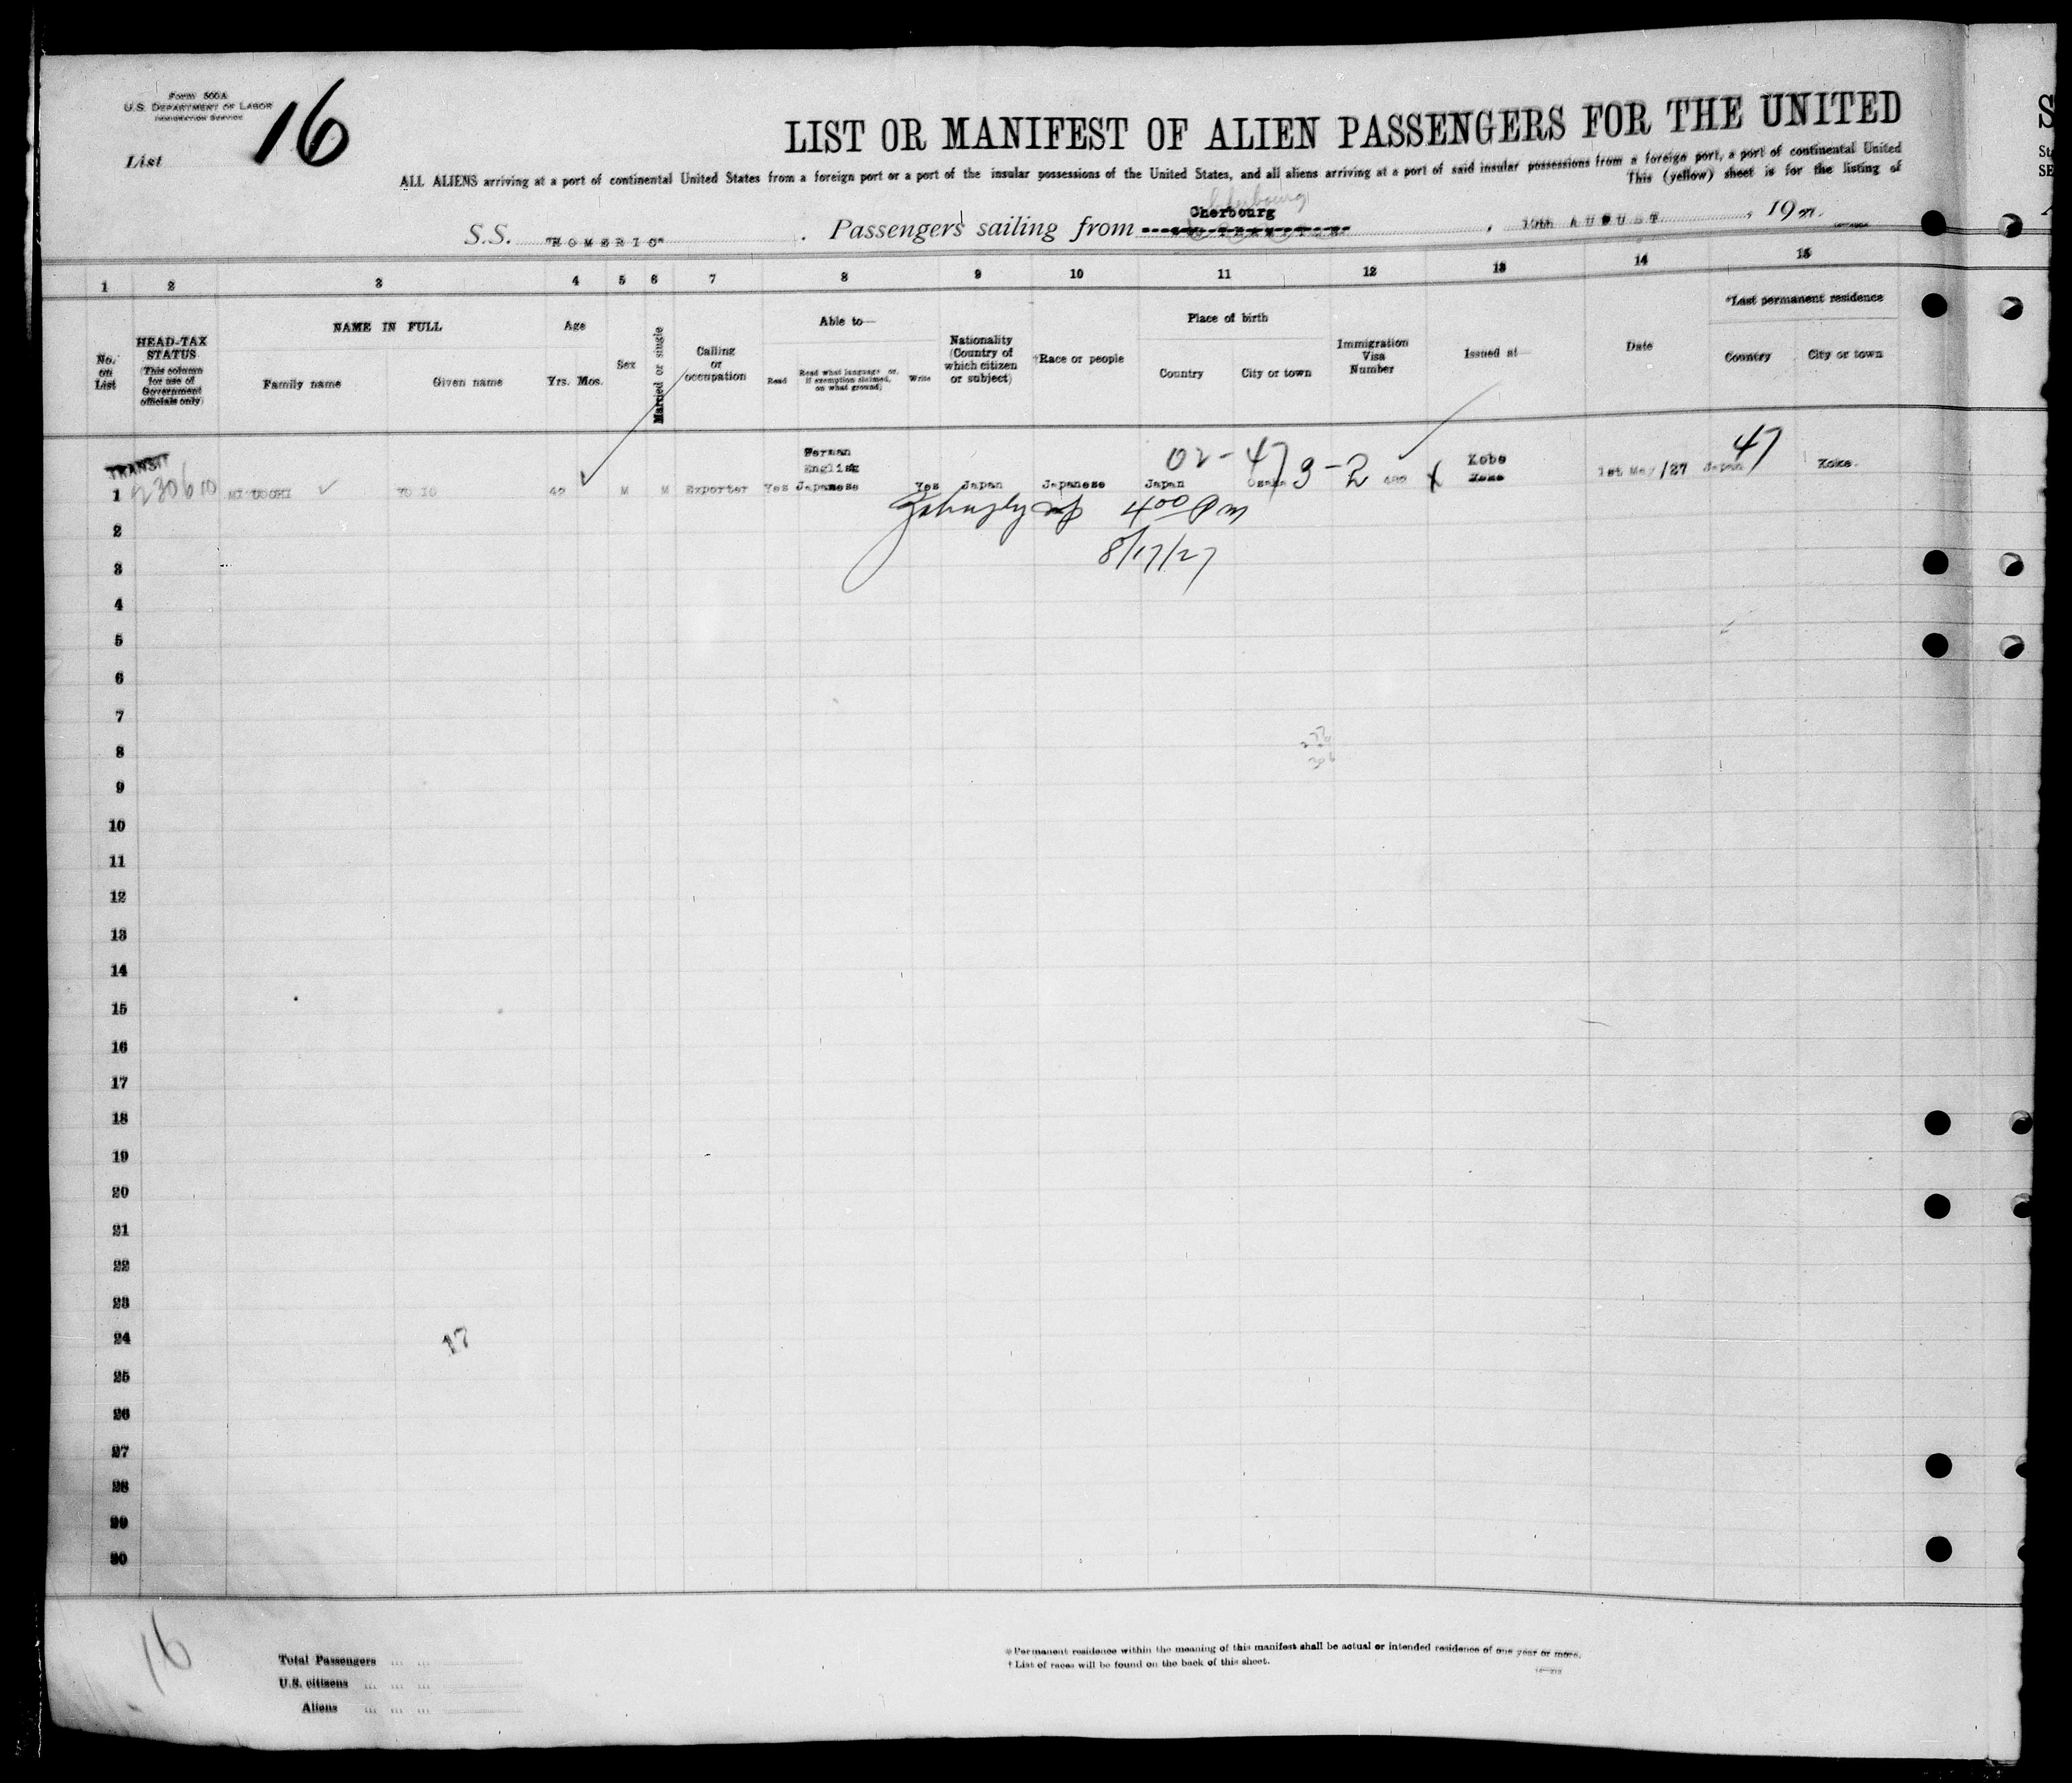 Form 500A
U.S. DEPARTMENT OF LABOR
IMMIGRATION SERVICE
List 16
LIST OR MANIFEST OF ALIEN PASSENGERS FOR THE UNITED
ALL ALIENS arriving at a port of continental United States from a foreign port or a port of the insular possessions of the United States, and all aliens arriving at a port of said insular possessions from a foreign port, a port of continental United
This (yellow) sheet is for the listing of
Cherbourg
S.S. "HOMERIC" . Passengers sailing from Cherbourg , 10th AUGUST , 1927.
1 2 3 4 5 6 7 8 9 10 11 12 13 14 15
No. on List
HEAD-TAX STATUS (This column for use of Government officials only)
NAME IN FULL
Family name Given name
Age
Yrs. Mos.
Sex
Married or single
Calling or occupation
Able to—
Read Read what language or, if exemption claimed, on what ground) Write
Nationality (Country of which citizen or subject)
†Race or people
Place of birth
Country City or town
Immigration Visa Number
Issued at—
Date
*Last permanent residence
Country City or town
TRANSIT
German
English
02-47 3-2
Kobe
47
1 42 M M Exporter Yes Japanese Yes Japan Japanese Japan Osaka 1st May/27 Japan
4 00 Pm
8/17/27
2
3
4
5
6
7
8
9
10
11
12
13
14
15
16
17
18
19
20
21
22
23
24
17
25
26
27
28
29
30
16
Total Passengers
U.S. citizens
Aliens
* Permanent residence within the meaning of this manifest shall be actual or intended residence of one year or more.
† List of races will be found on the back of this sheet.